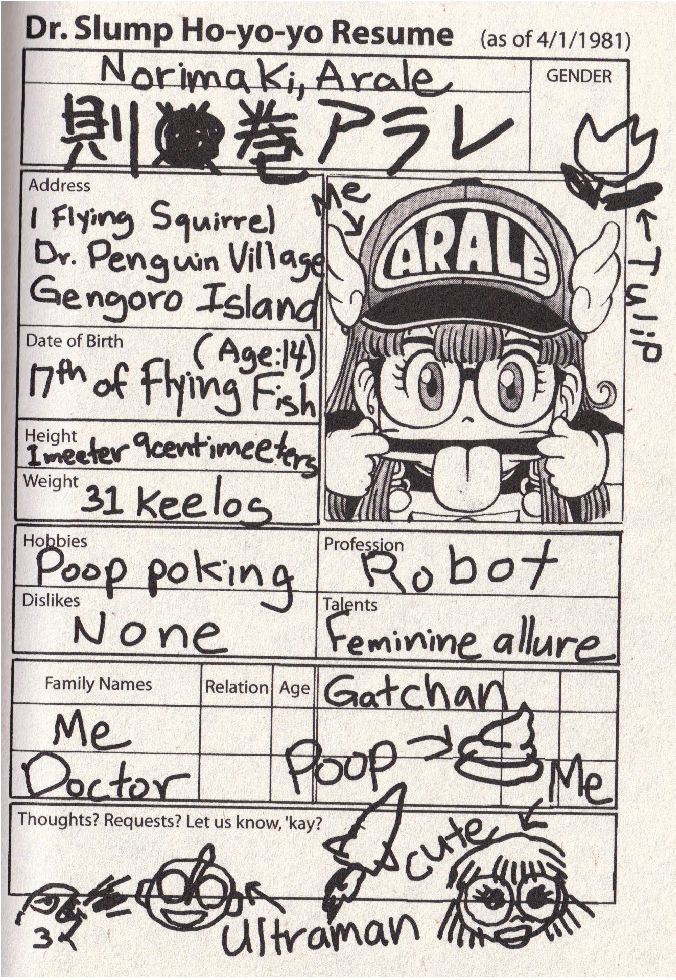 Dr. Slump Ho-yo-yo Resume (as of 4/1/1981)
Norimaki, Arale
GENDER
則巻アラレ
Address
1 Flying Squirrel
Dr. Penguin Village
Gengoro Island
Me
ARALE
Tulip
Date of Birth
(Age:14)
17th of Flying Fish
Height
1meeter 9centimeeters
Weight
31 keelos
Hobbies
Poop poking
Profession
Robot
Dislikes
None
Talents
Feminine allure
Family Names Relation Age
Gatchan
Me
Poop
Me
Doctor
Thoughts? Requests? Let us know, 'kay?
cute
Ultraman